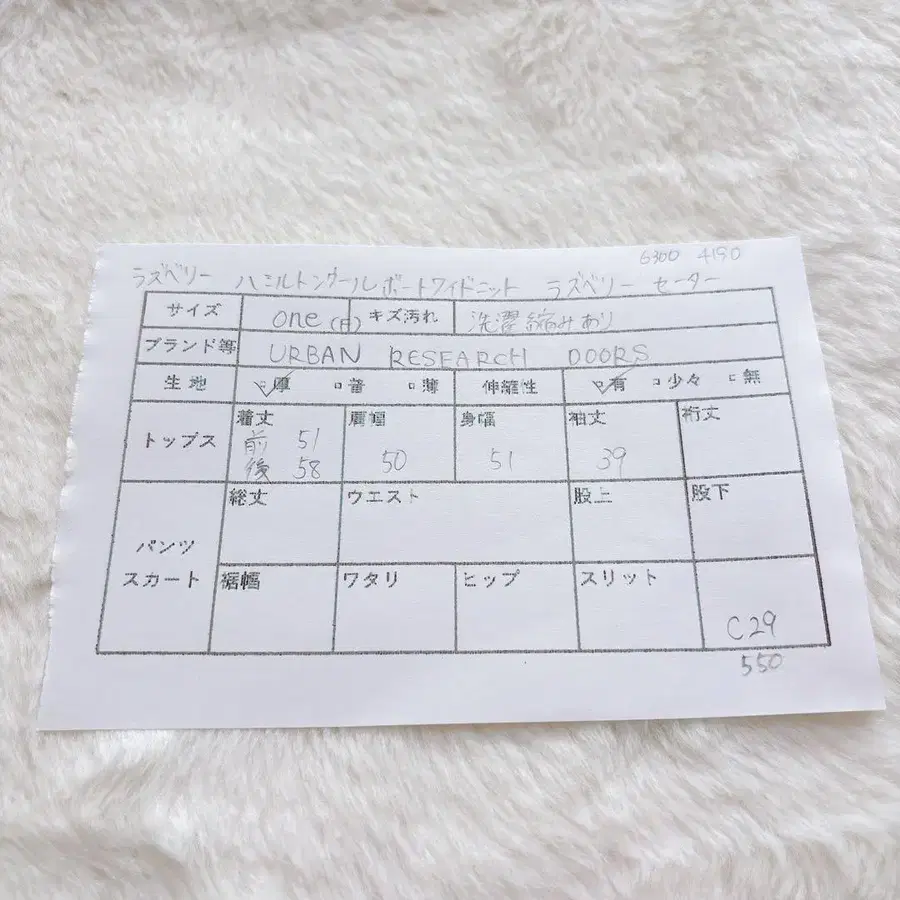 6300 4190
ラズベリー ハミルトンウールボートワイドニット ラズベリー セーター
サイズ one (F) キズ汚れ 洗濯縮みあり
ブランド等 URBAN RESEARCH DOORS
生地 ☑厚 □普 □薄 伸縮性 ☑有 □少々 □無
トップス 着丈 前 51 後 58 肩幅 50 身幅 51 袖丈 39 裄丈
パンツ スカート 総丈 ウエスト 股上 股下
裾幅 ワタリ ヒップ スリット C29
550